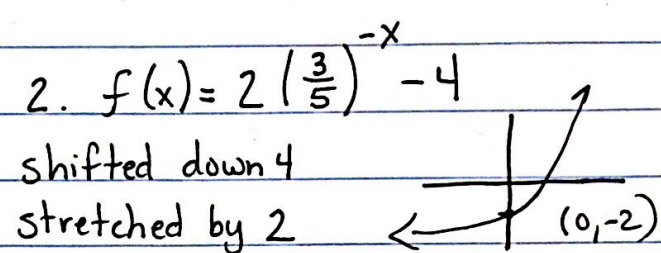 2. f(x) = 2(3/5)^-x - 4
shifted down 4
stretched by 2
(0,-2)